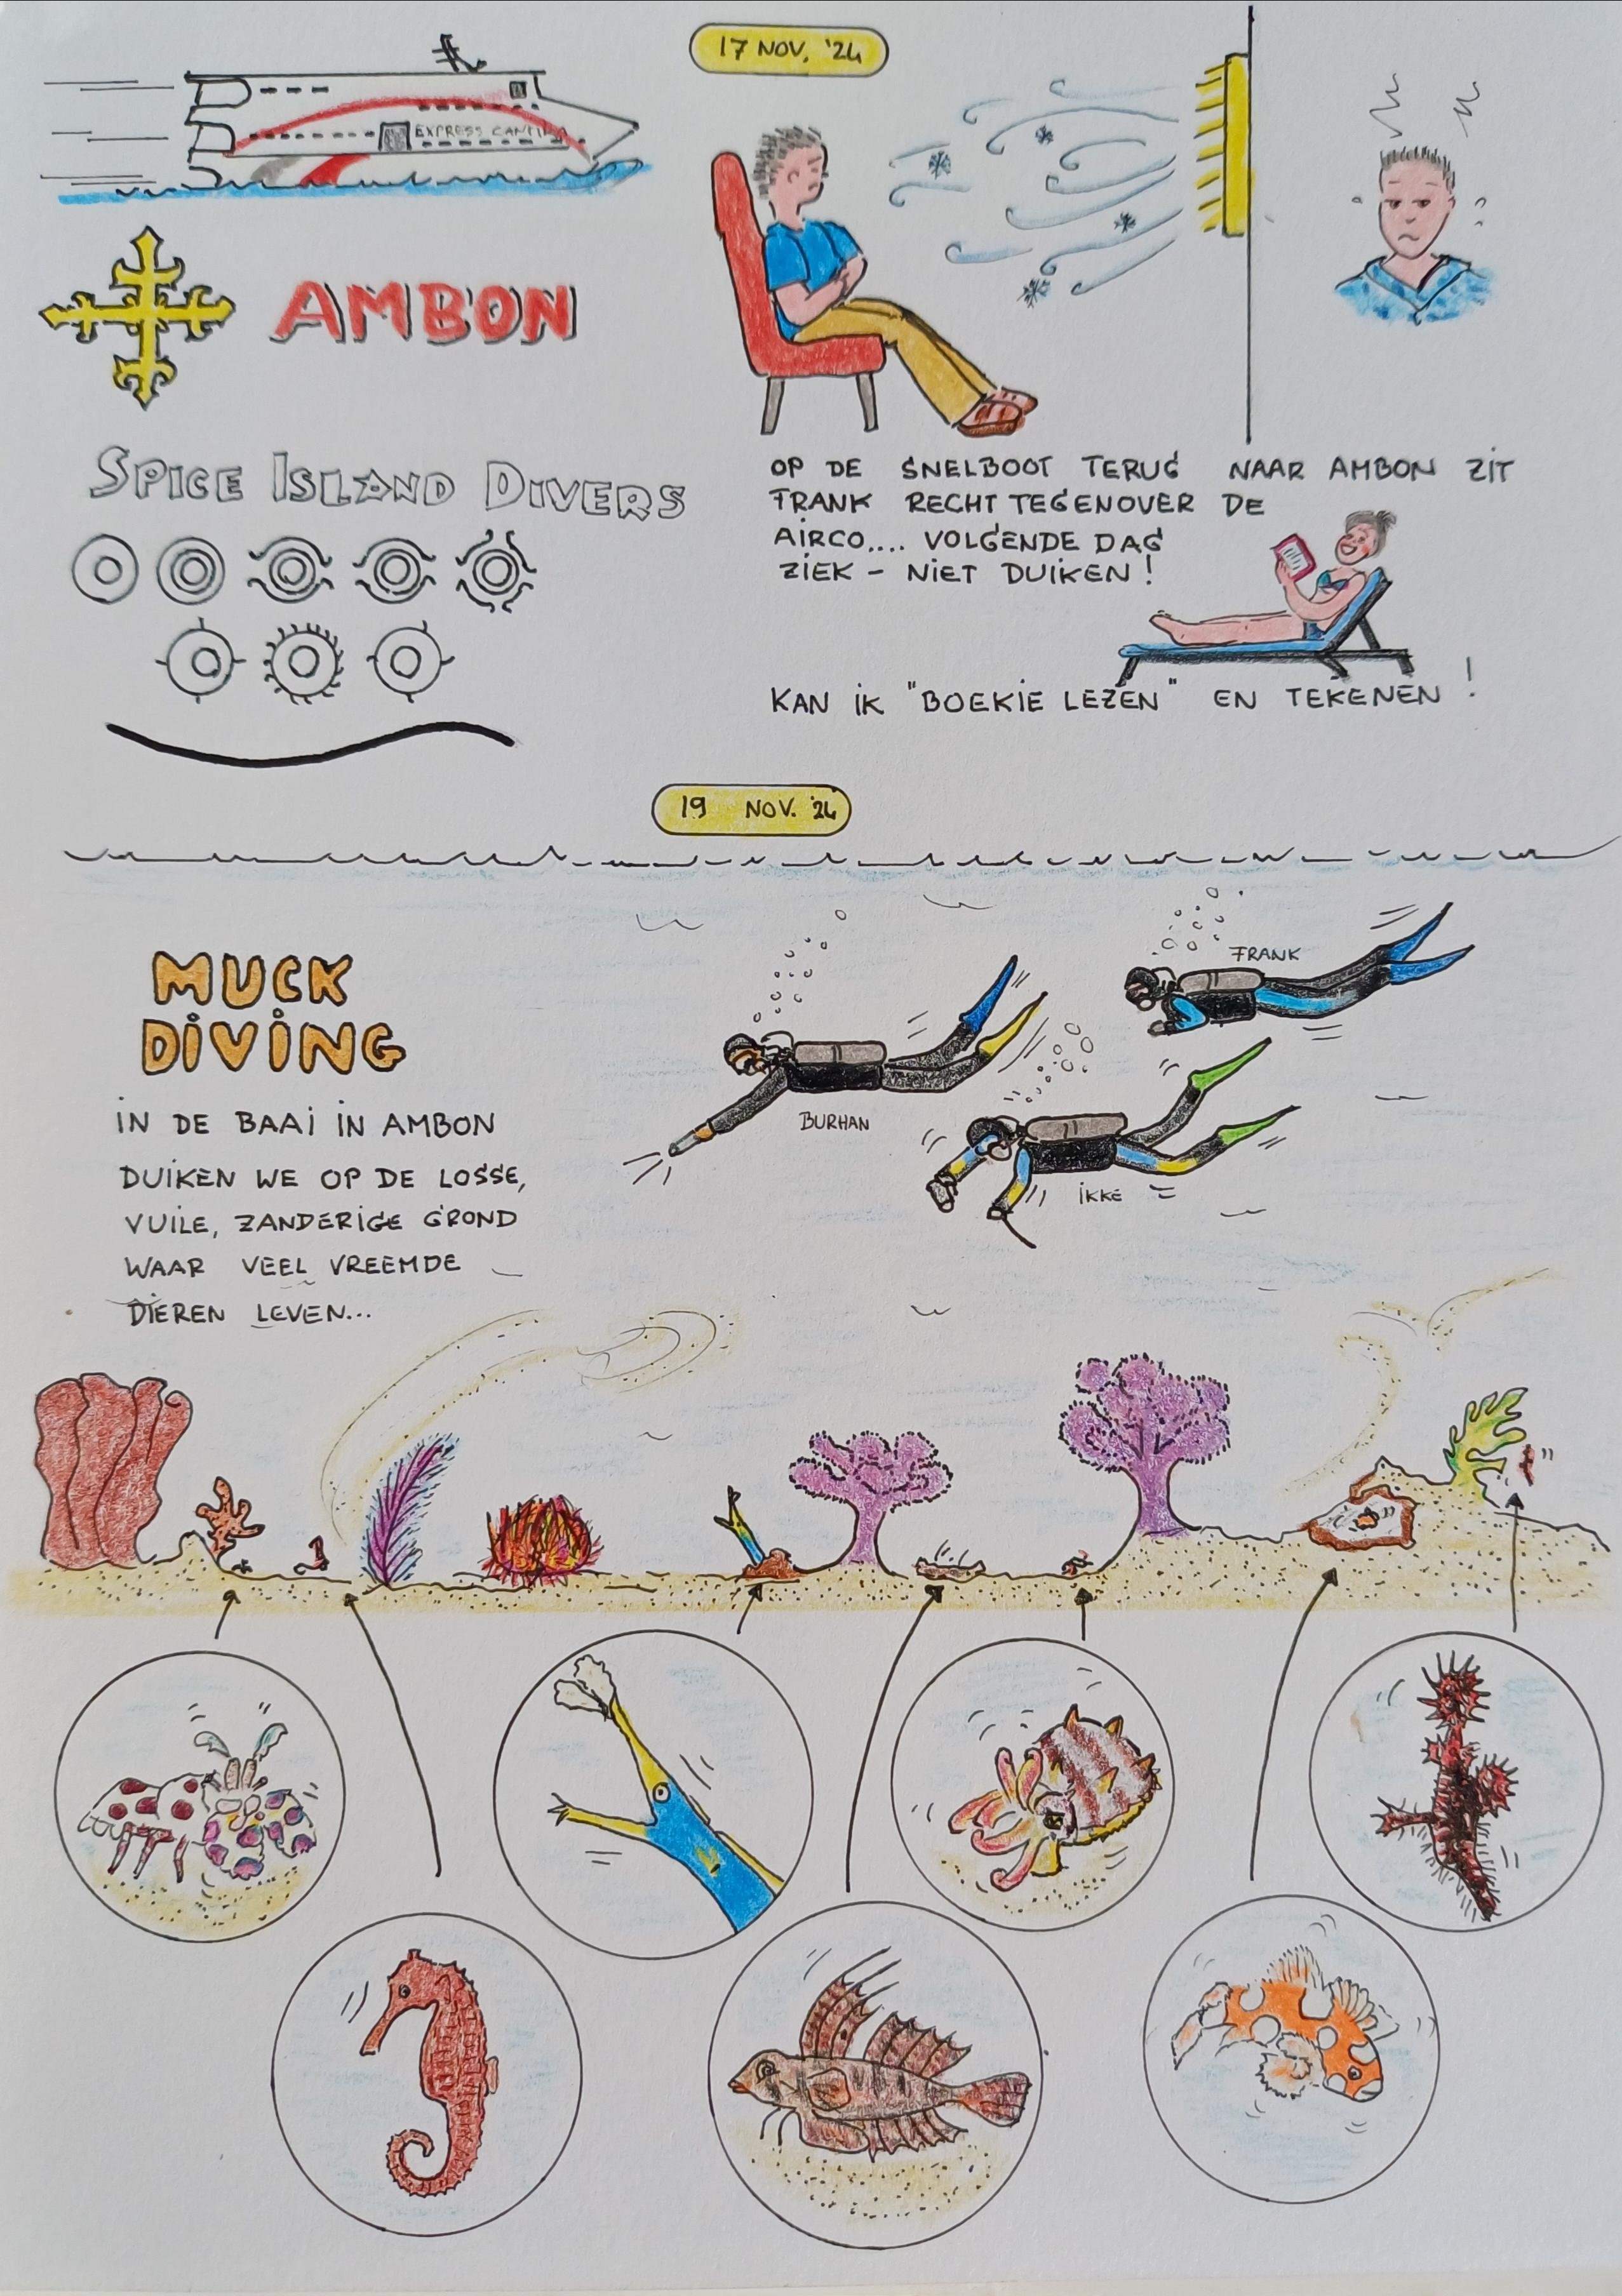 17 NOV. '24
EXPRESS CANTIKA
AMBON
SPICE ISLAND DIVERS
OP DE SNELBOOT TERUG NAAR AMBON ZIT
FRANK RECHT TEGENOVER DE
AIRCO.... VOLGENDE DAG
ZIEK - NIET DUIKEN!
KAN IK "BOEKIE LEZEN" EN TEKENEN!
19 NOV. '24
MUCK
DIVING
IN DE BAAI IN AMBON
DUIKEN WE OP DE LOSSE,
VUILE, ZANDERIGE GROND
WAAR VEEL VREEMDE
DIEREN LEVEN...
FRANK
BURHAN
IKKE